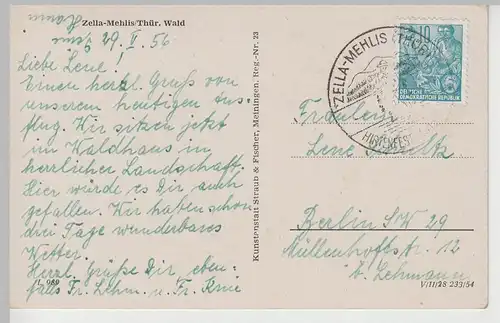 Zella-Mehlis/Thür. Wald
29. I. 56
Liebe Lene!
Einen herzl. Gruß von
unserem heutigen Aus-
flug. Wir sitzen jetzt
im Waldhaus in
herrlicher Landschaft.
Hier würde es Dir auch
gefallen. Wir haben schon
drei Tage wunderbares
Wetter.
Herzl. Grüße Dir eben-
falls Fr. Lehm. u. Fr.
L 989
Kunstanstalt Straub & Fischer, Meiningen, Reg.-Nr. 23
ZELLA-MEHLIS (THÜR
10
DEUTSCHE
DEMOKRATISCHE REPUBLIK
Fräulein
Lene
Berlin SW 29
Müllenhoffstr. 12
b. Lehmann
V/11/28 233/54